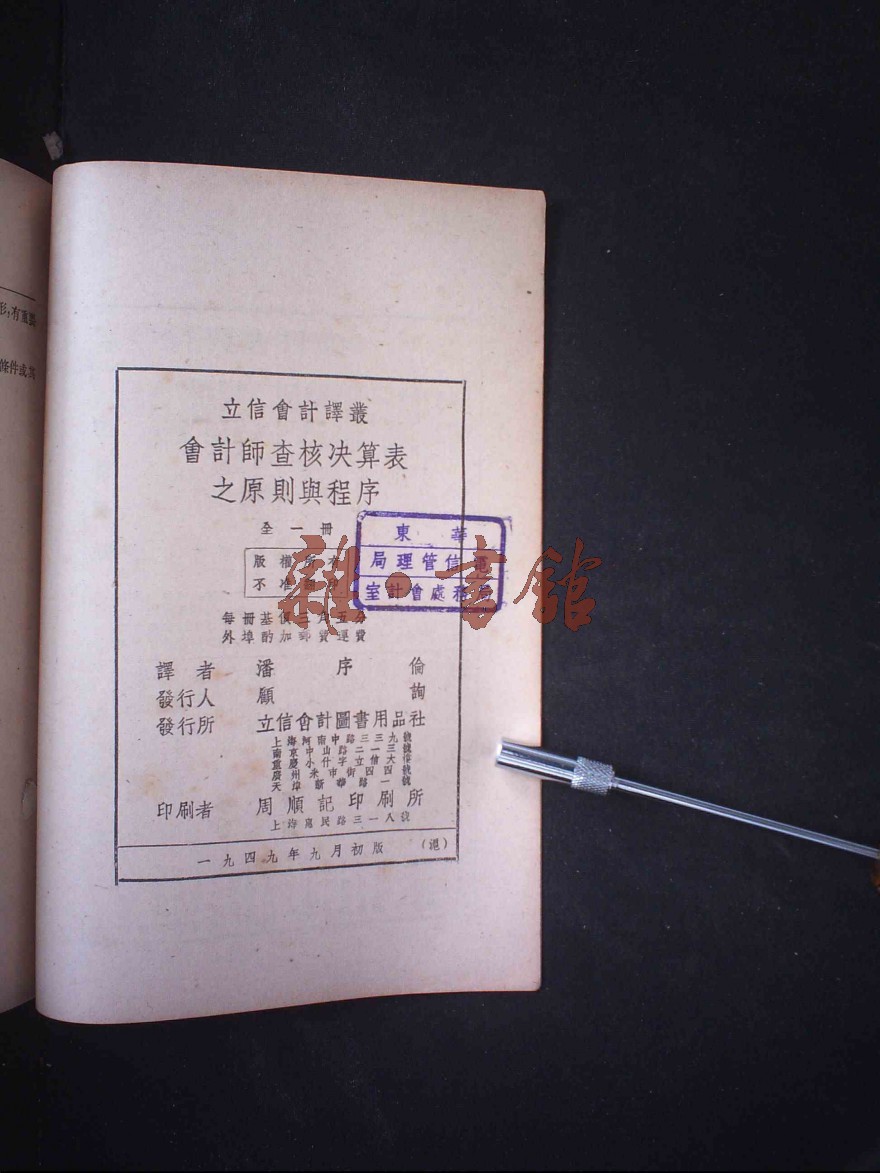 形,有重要
條件或其
立信會計譯叢
會計師查核決算表
之原則與程序
全一冊
版權所有
不准翻印
華東
電信管理局
局務處會計室
雜·書館
每冊基價三角五分
外埠酌加郵費運費
譯者 潘序倫
發行人 顧詢
發行所 立信會計圖書用品社
上海河南中路三三九號
南京中山路二一三號
重慶小什字立信大樓
廣州米市街四四號
天津新華路一號
印刷者 周順記印刷所
上海惠民路三一八號
一九四九年九月初版 (滬)